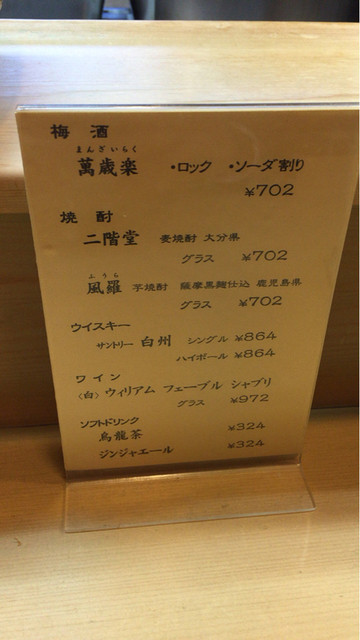 梅酒
まんざいらく
萬歳楽 ・ロック ・ソーダ割り
¥702
焼酎
二階堂 麦焼酎 大分県
グラス ¥702
ふうら
風羅 芋焼酎 薩摩黒麹仕込 鹿児島県
グラス ¥702
ウイスキー
サントリー 白州 シングル ¥864
ハイボール ¥864
ワイン
〈白〉ウィリアム フェーブル シャブリ
グラス ¥972
ソフトドリンク
烏龍茶 ¥324
ジンジャエール ¥324